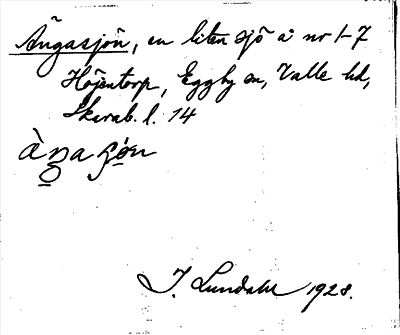 Ängasjön, en liten sjö å nr 1-7
Höjentorp, Eggby sn, Valle hd,
Skarab. l. 14
J. Lundahl 1928.